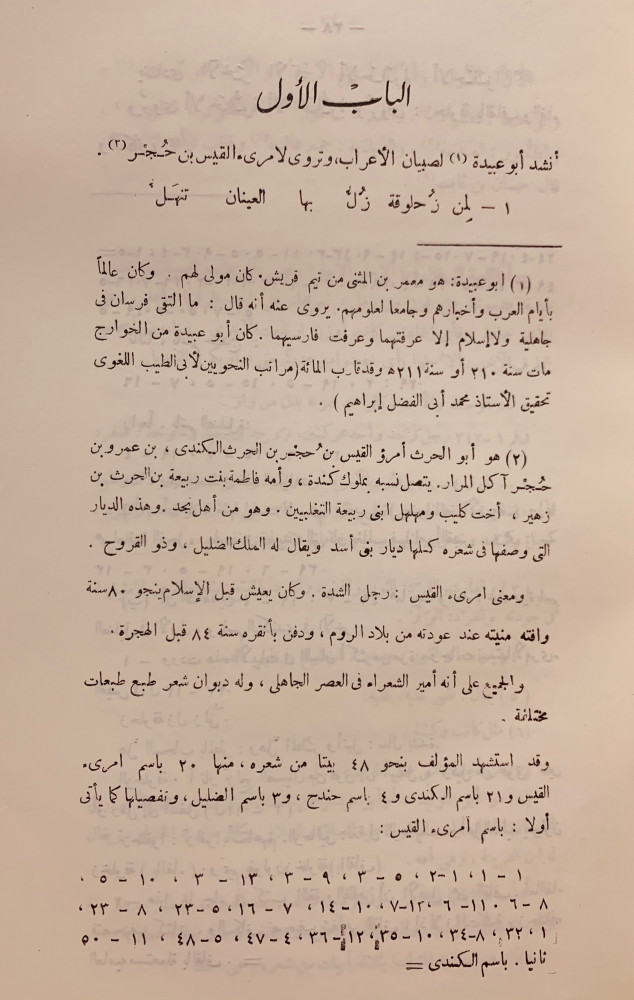 الباب الأول
أنشد أبو عبيدة (١) لصبيان الأعراب، وتروى لامرىء القيس بن حُجْر (٢) .
١ – لِمن زُحلوقة زُلُّ بها العينان تنهَلّ
(١) أبو عبيدة: هو معمر بن المثنى من تيم قريش. كان مولى لهم . وكان عالماً
بأيام العرب وأخبارهم وجامعا لعلومهم. يروى عنه أنه قال : ما التقى فرسان فى
جاهلية ولا إسلام إلا عرفتهما وعرفت فارسيهما . كان أبو عبيدة من الخوارج
مات سنة ٢١٠ أو سنة ٢١١ھ وقد قارب المائة (مراتب النحويين لأبى الطيب اللغوى
تحقيق الأستاذ محمد أبى الفضل إبراهيم ) .
(٢) هو أبو الحرث أمرؤ القيس بن حُجْر بن الحرث الكندى ، بن عمرو بن
حُجْر آكل المرار. يتصل نسبه بملوك كندة ، وأمه فاطمة بنت ربيعة بن الحرث بن
زهير ، أخت كليب ومهلهل ابنى ربيعة التغلبيين . وهو من أهل نجد . وهذه الديار
التى وصفها فى شعره كلها ديار بنى أسد ويقال له الملك الضليل ، وذو القروح .
ومعنى امرىء القيس : رجل الشدة . وكان يعيش قبل الإسلام بنحو ٨٠ سنة
وافته منيته عند عودته من بلاد الروم ، ودفن بأنقره سنة ٨٤ قبل الهجرة .
والجميع على أنه أمير الشعراء فى العصر الجاهلى ، وله ديوان شعر طبع طبعات
مختلفة .
وقد استشهد المؤلف بنحو ٤٨ بيتا من شعره ، منها ٢٠ باسم امرىء
القيس و ٢١ باسم الكندى و ٤ باسم حندج ، و ٣ باسم الضليل ، وتفصيلها كما يأتى
أولا : باسم امرىء القيس :
١ – ١ ، ١ – ٢ ، ٥ – ٣ ، ٩ – ٣ ، ١٣ – ٣ ، ١٠ – ٥ ،
٨ – ٦ ، ١١ – ٦ ، ١٢ – ٧ ، ١٠ – ١٤ ، ٧ – ١٦ ، ٥ – ٢٣ ، ٨ – ٢٣ ،
١ ، ٣٢ ، ٨ – ٣٤ ، ١٠ – ٣٥ ، ١٢ – ٣٦ ، ٤ – ٤٧ ، ٥ – ٤٨ ، ١١ – ٥٠
ثانيا . باسم الكندى =